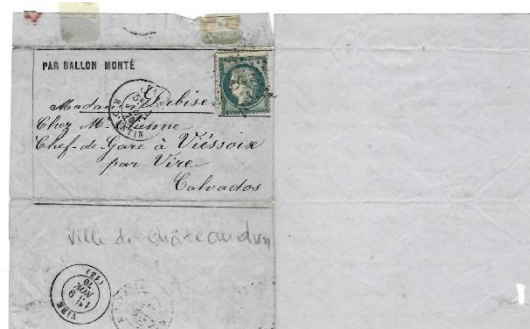 PAR BALLON MONTÉ
Madame Debise
Chez Mr Etienne
Chef-de Gare à Viessoix
par Vire
Calvados
Ville de Châteaudun
VIRE
NOV.
70